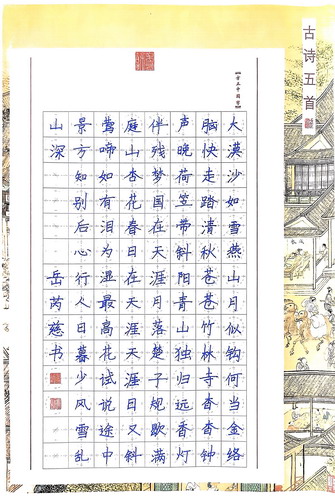 古诗五首
大漠沙如雪燕山月似钩何当金络
脑快走踏清秋苍苍竹林寺杳杳钟
声晚荷笠带斜阳青山独归远香灯
伴残梦国在天涯月落楚子规歇满
庭山杏花春日在天涯天涯日又斜
莺啼如有泪为湿最高花试说途中
景方知别后心行人日暮少风雪乱
山深 岳芮慈书